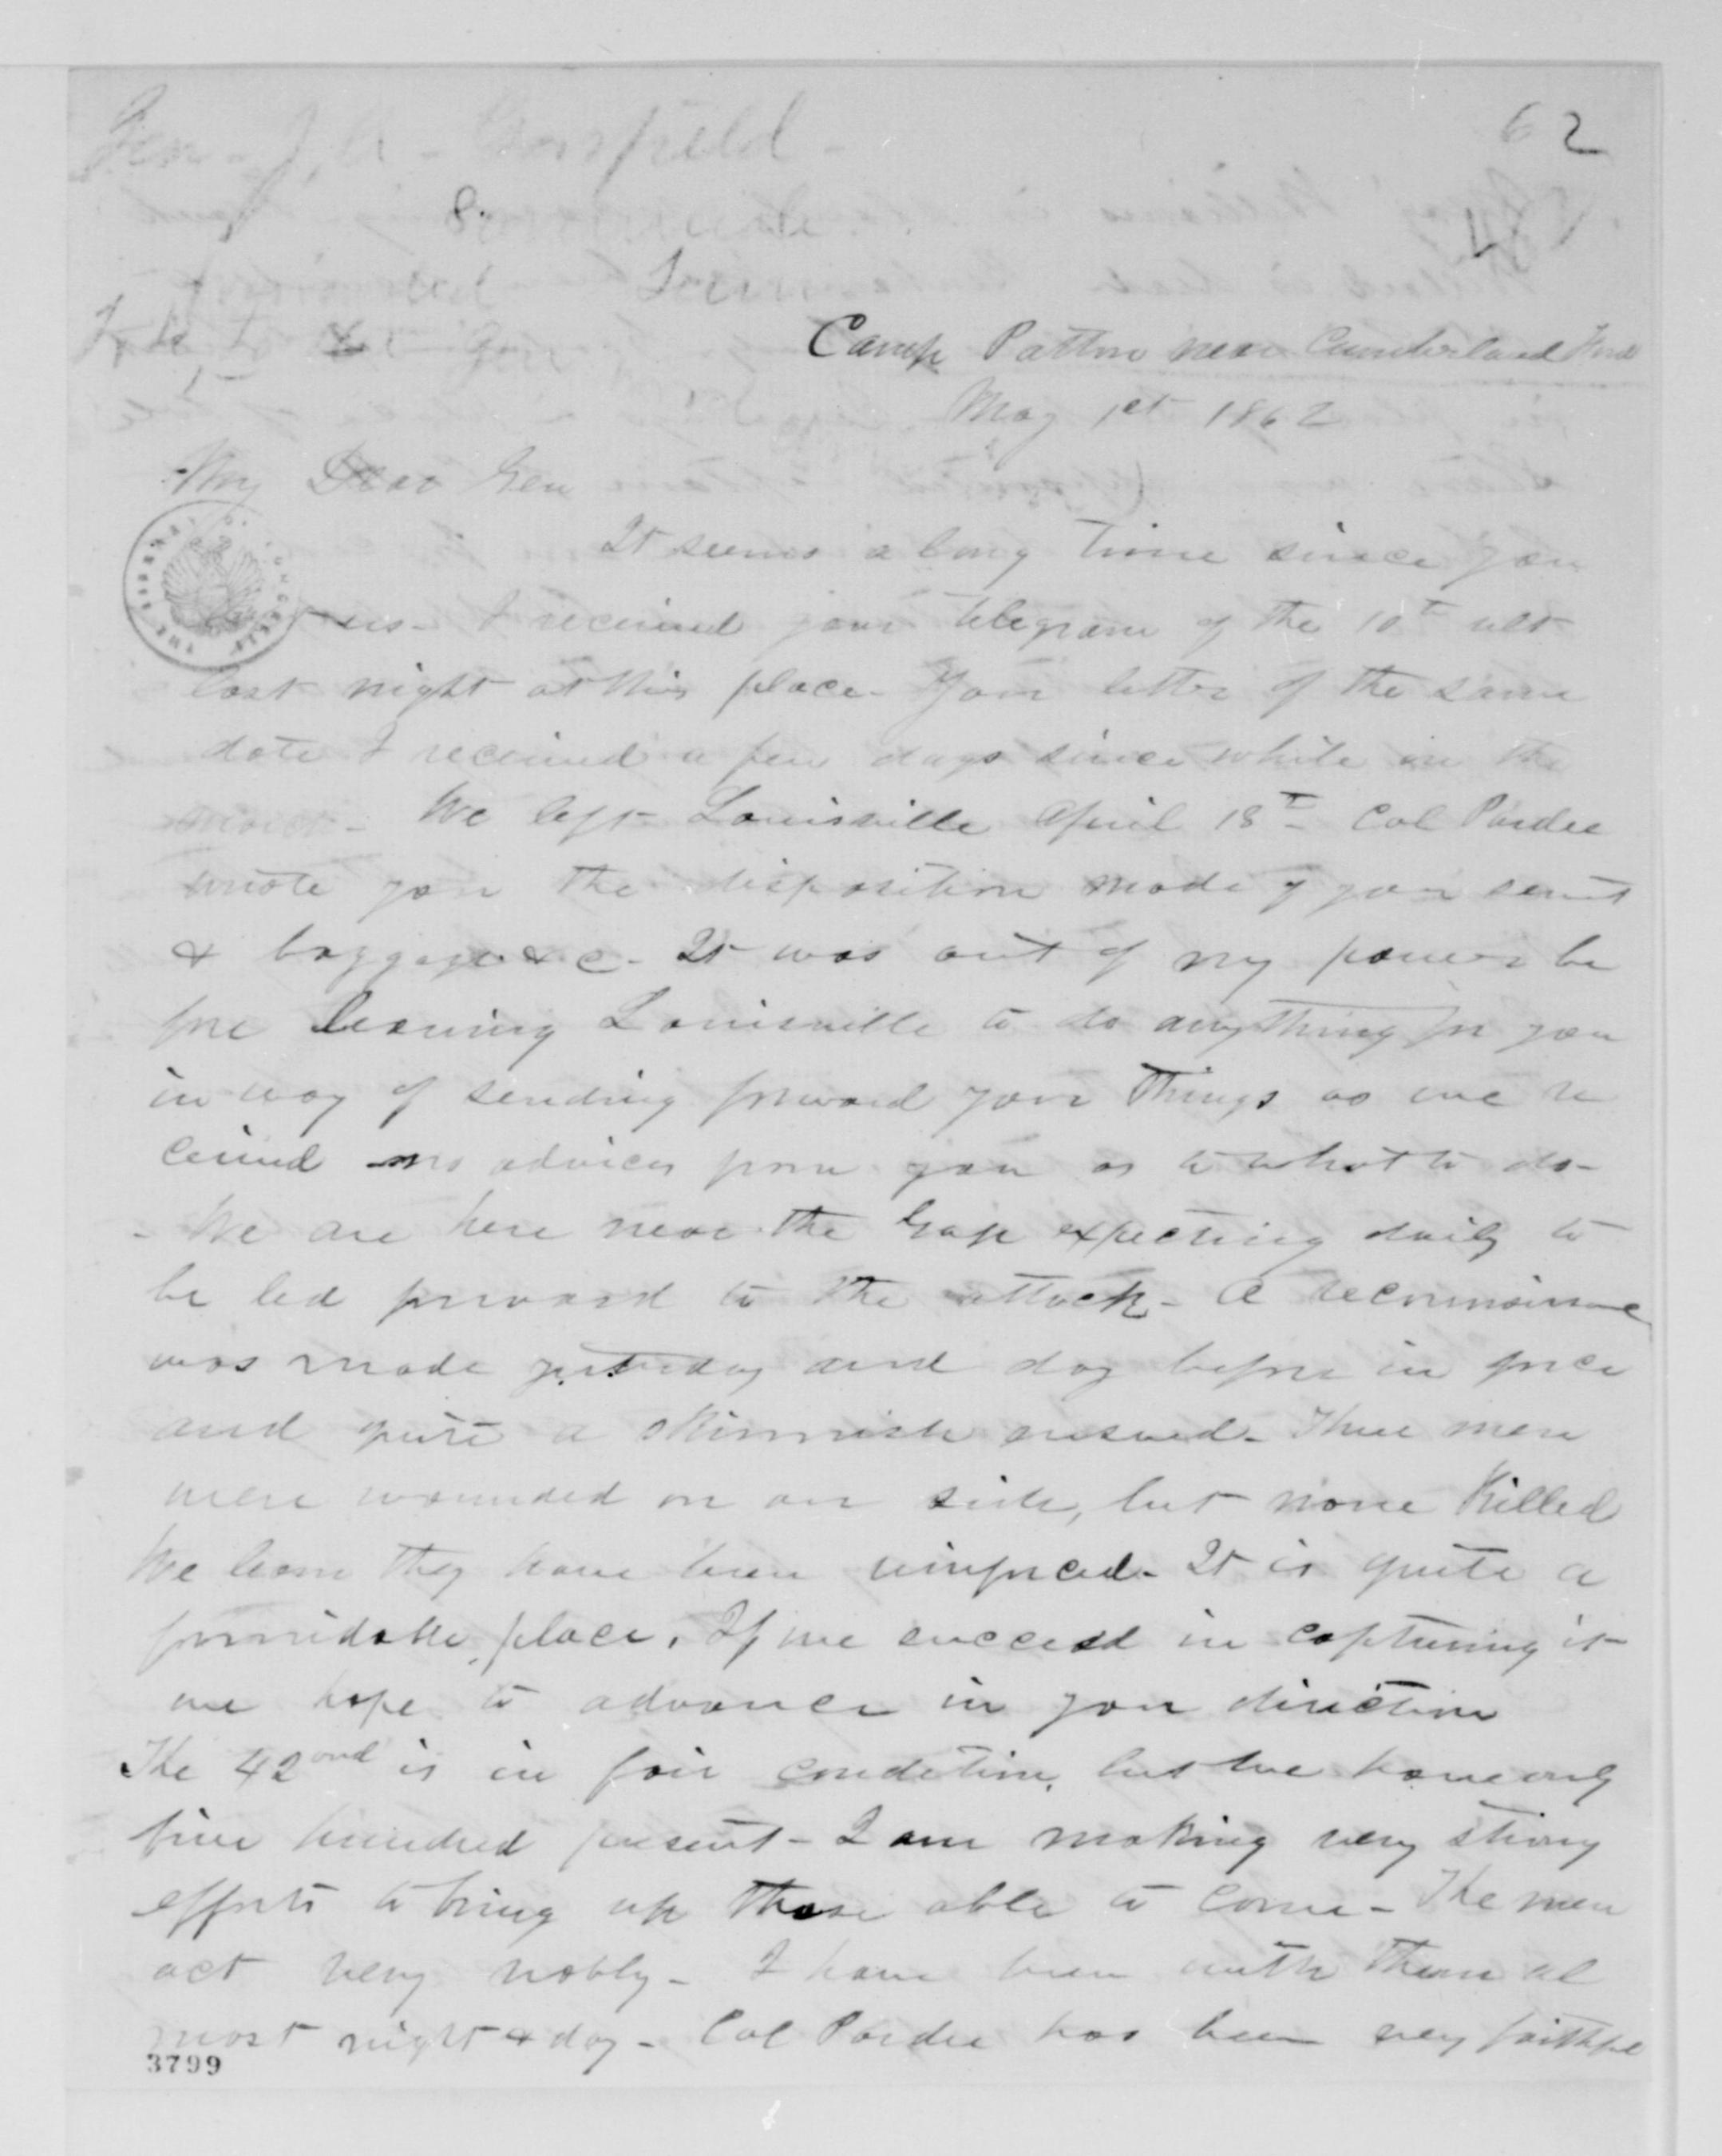 Gen - J. A - Garfield -
62
Camp Patton near Cumberland Ford
May 1st 1862
My Dear Gen
It seems a long time since you
us - I received your telegram of the 10th ult
last night at this place - Your letter of the same
date I received a few days since while on the
march - We left Louisville April 18th - Col Pardee
wrote you the disposition made of your
& baggage &c - It was out of my power be
fore leaving Louisville to do anything for you
in way of sending forward your things as we re
ceived no advices from you as to what to do -
- We are here near the Gap expecting daily to
be led forward to the attack - A reconnoisance
was made yesterday and day before in force
and quite a skirmish ensued - Three men
were wounded on our side, but none killed
We learn they have been reinforced - It is quite a
formidable place. If we succeed in capturing it
we hope to advance in your direction
The 42ond is in fair condition, but we have only
five hundred present - I am making very strong
efforts to bring up those able to come - The men
act very nobly - I have been with them al
most night & day - Col Pardee has been very faithful
3799